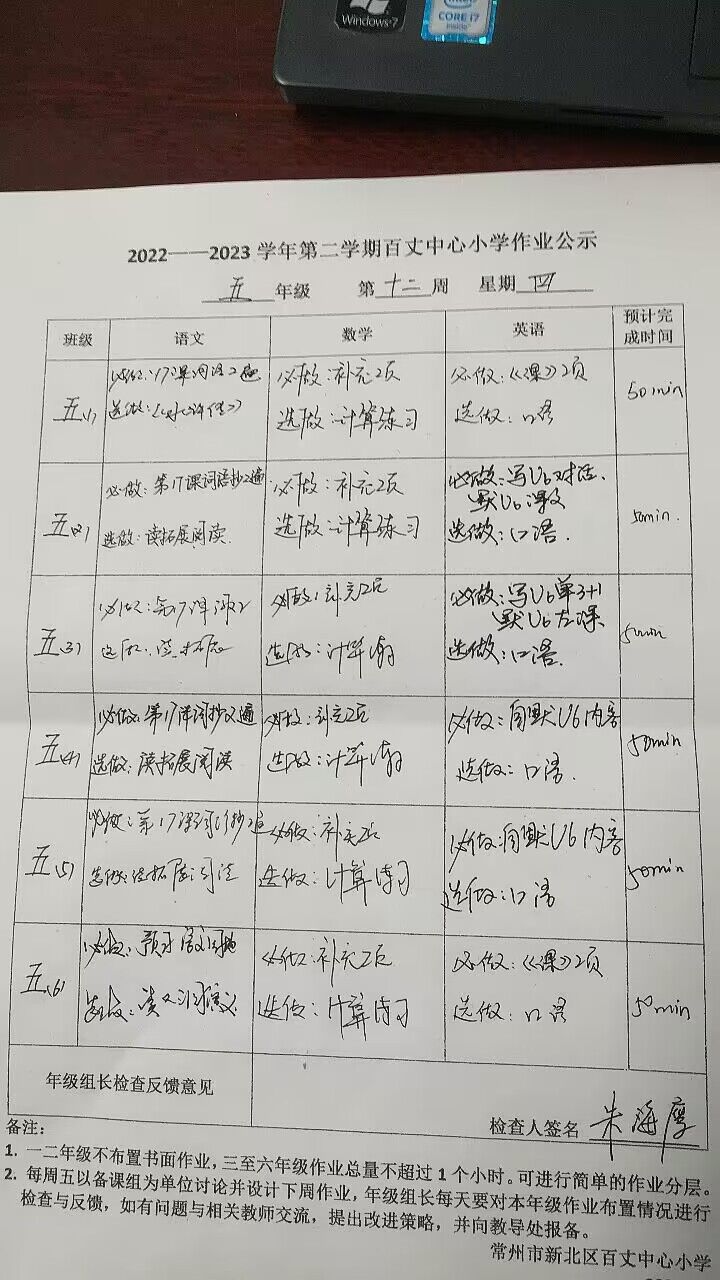 Windows 7
CORE i7
inside
2022——2023 学年第二学期百丈中心小学作业公示
五 年级 第十二周 星期四
班级 语文 数学 英语 预计完成时间
五(1)
必做:17课词语2遍
选做:
必做:补充2页
选做:计算练习
必做:《课》2页
选做:口语
50min
五(2)
必做:第17课词语抄2遍
选做:读拓展阅读
必做:补充2页
选做:计算练习
必做:写U6对话、
默U6课文
选做:口语.
50min.
五(3)
必做:第17课词
选做:读拓展
必做:补充2页
选做:计算练习
必做:写U6单3+1
默U6
选做:口语.
50min
五(4)
必做:第17课词抄2遍
选做:读拓展阅读
必做:补充2页
选做:计算练习
必做:自默U6内容
选做:口语.
50min
五(5)
必做:第17课词语抄2遍
选做:读拓展阅读
必做:补充2页
选做:计算练习
必做:自默U6内容
选做:口语
50min
五(6)
必做:
选做:
必做:补充2页
选做:计算练习
必做:《课》2页
选做:口语
50min
年级组长检查反馈意见
检查人签名 朱海
备注:
1. 一二年级不布置书面作业,三至六年级作业总量不超过 1 个小时。可进行简单的作业分层。
2. 每周五以备课组为单位讨论并设计下周作业,年级组长每天要对本年级作业布置情况进行
检查与反馈,如有问题与相关教师交流,提出改进策略,并向教导处报备。
常州市新北区百丈中心小学